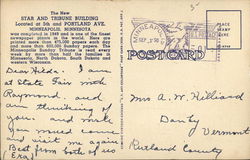 The New
STAR AND TRIBUNE BUILDING
Located at 5th and PORTLAND AVE.
MINNEAPOLIS, MINNESOTA
was completed in 1949 and is one of the finest
newspaper plants in the world. Here are
printed more than 475,000 papers each day
and more than 600,000 Sunday papers. The
Minneapolis Sunday Tribune is read each
week by more than half the families in
Minnesota, North Dakota, South Dakota and
western Wisconsin.
MINNEAPOLIS
POSTCARD
PLACE
STAMP
HERE
Dear Hilda. I am
at State Fair with
Raymond, and
am thinking of
you and
you must
and visit me again
Best from both of us
Mrs. A. W. Hilliard
Danby
Vermont
Rutland County